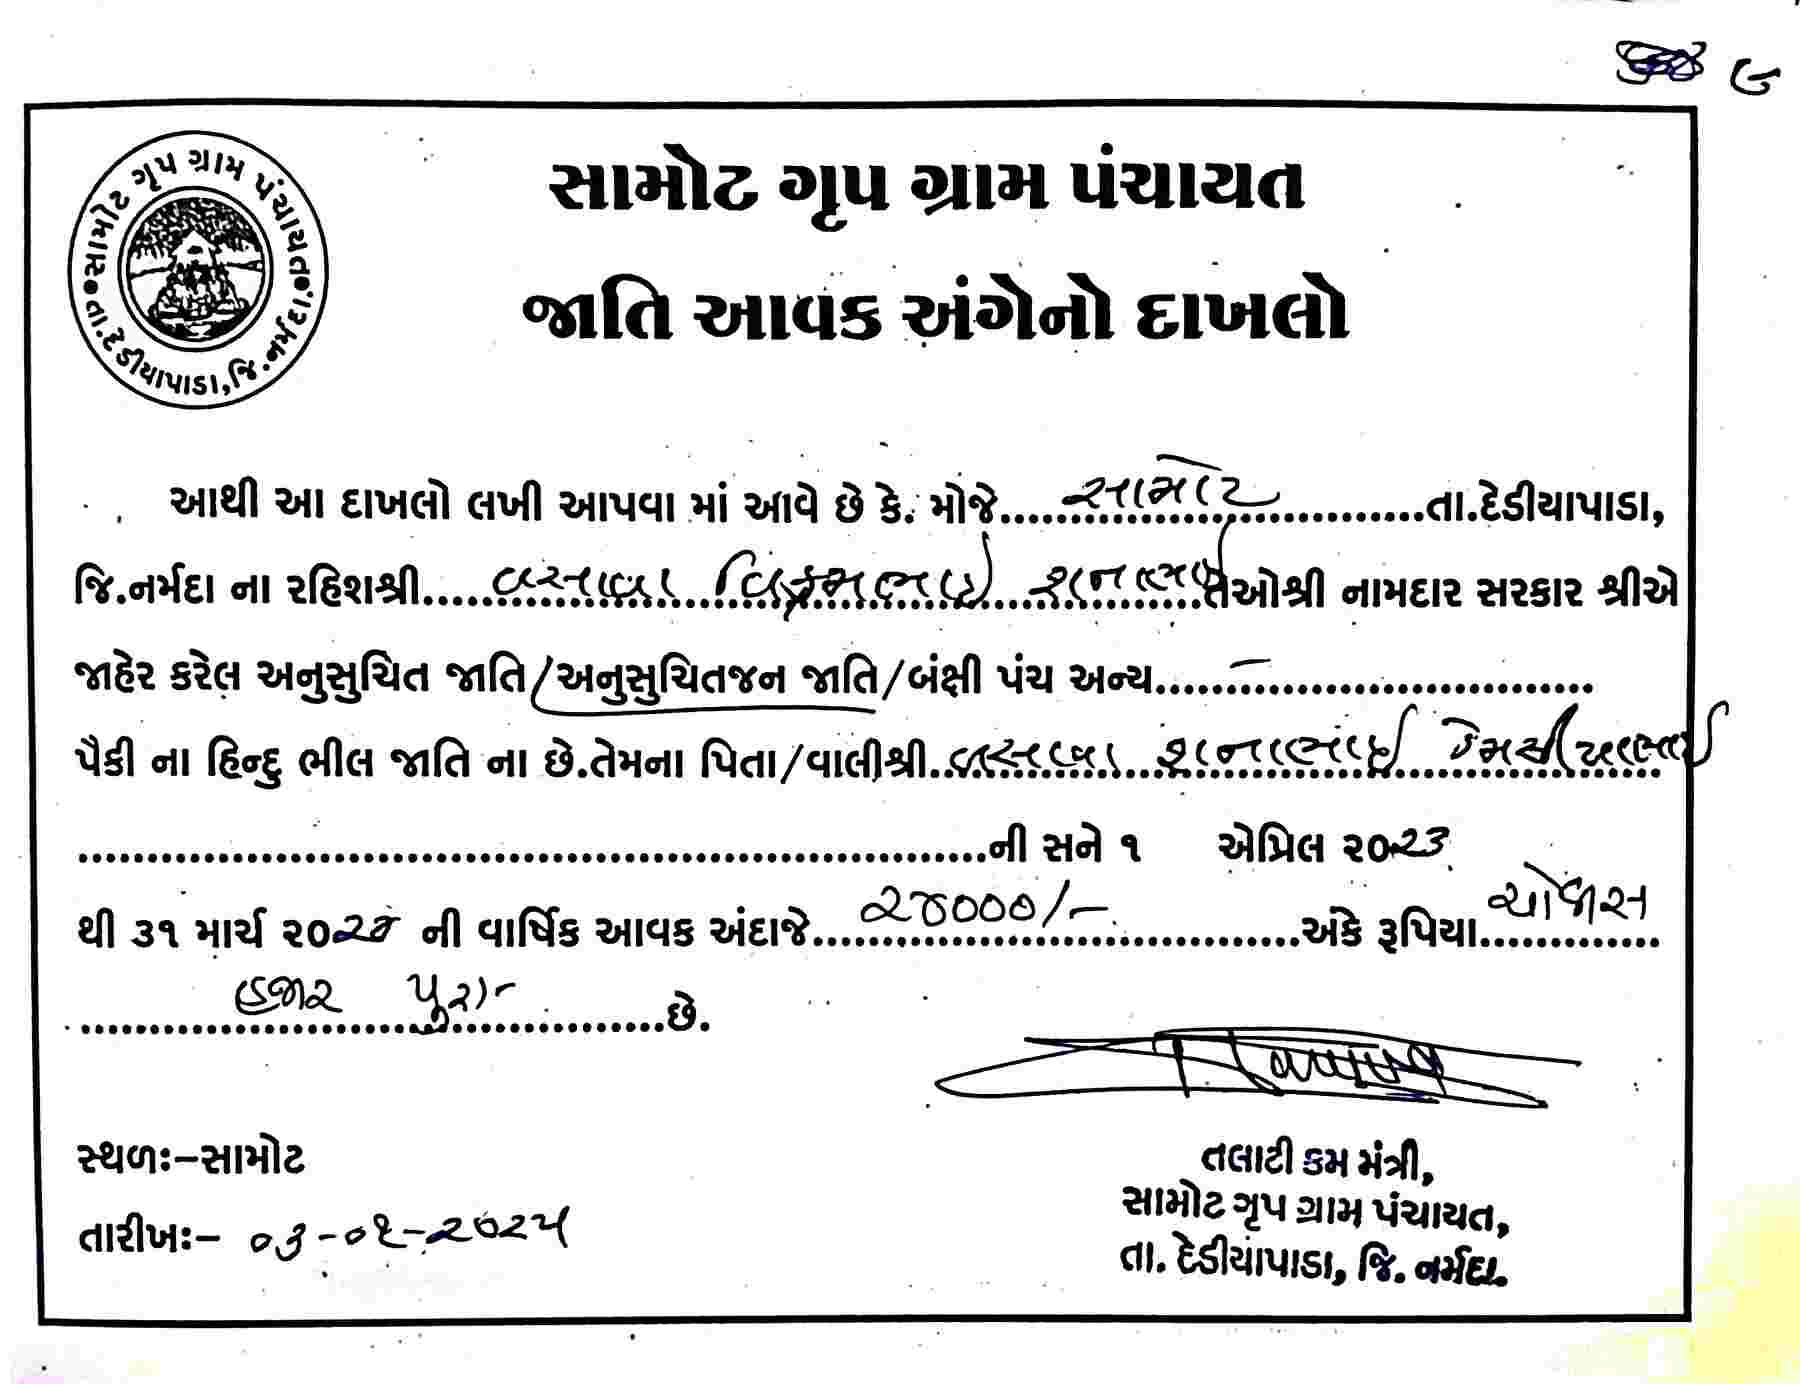 ૯
સામોટ ગૃપ ગ્રામ પંચાયત
તા.દેડીયાપાડા, જિ.નર્મદા
સામોટ ગૃપ ગ્રામ પંચાયત
જાતિ આવક અંગેનો દાખલો
આથી આ દાખલો લખી આપવા માં આવે છે કે. મોજે....સામોટ....તા.દેડીયાપાડા,
જિ.નર્મદા ના રહિશશ્રી....વસાવા વિક્રમભાઈ શનાભાઈ તેઓશ્રી નામદાર સરકાર શ્રીએ
જાહેર કરેલ અનુસુચિત જાતિ/અનુસુચિતજન જાતિ/બંક્ષી પંચ અન્ય....–....
પૈકી ના હિન્દુ ભીલ જાતિ ના છે.તેમના પિતા/વાલીશ્રી..વસાવા શનાભાઈ
....ની સને ૧ એપ્રિલ ૨૦૨૩
થી ૩૧ માર્ચ ૨૦૨૪ ની વાર્ષિક આવક અંદાજે....૨૪૦૦૦/–....અંકે રૂપિયા....ચોવીસ
હજાર પુરા–....છે.
સ્થળઃ–સામોટ
તારીખઃ– ૦૩-૦૧-૨૦૨૫
તલાટી કમ મંત્રી,
સામોટ ગૃપ ગ્રામ પંચાયત,
તા. દેડીયાપાડા, જિ. નર્મદા.